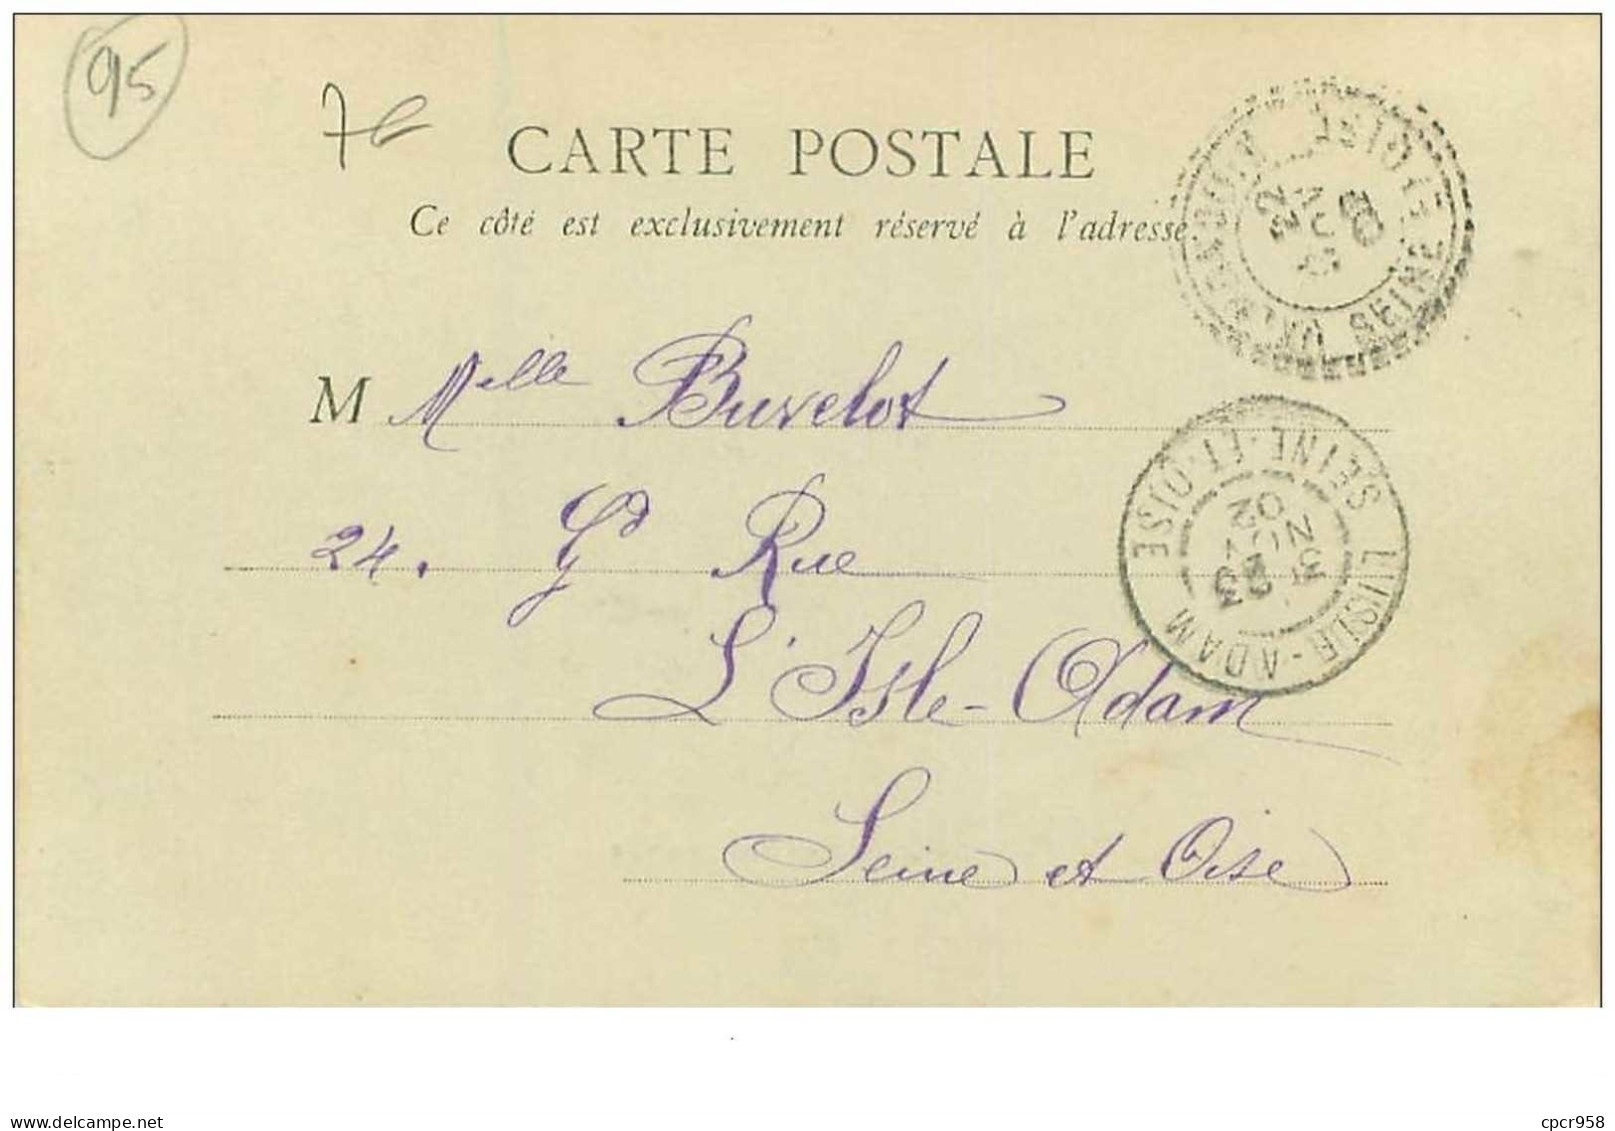 95
CARTE POSTALE
Ce côté est exclusivement réservé à l'adresse
22
SEINE
M Melle Buvelot
24. Gd Rue
L'Isle-Adam
Seine et Oise
L'ISLE-ADAM
SEINE-ET-OISE
23
NOV
02
www.delcampe.net
cpcr958